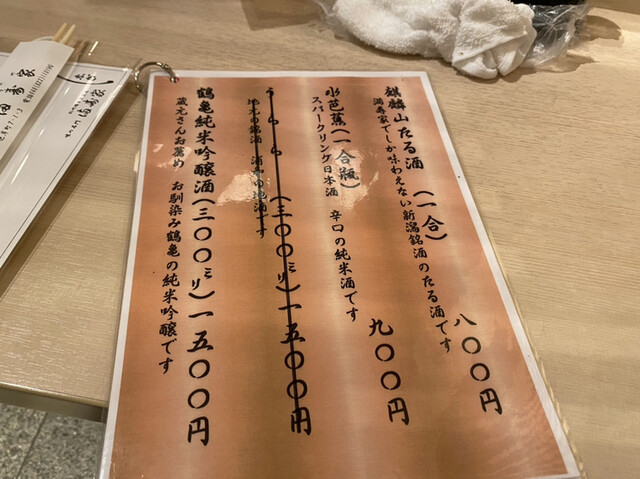 麒麟山たる酒(一合) 八〇〇円
満寿家でしか味わえない新潟銘酒のたる酒です
水芭蕉(一合瓶) 九〇〇円
スパークリング日本酒 辛口の純米酒です
うらら(三〇〇ミリ)一五〇〇円
地元の銘酒 浦和の地酒です
鶴亀純米吟醸酒(三〇〇ミリ)一五〇〇円
蔵元さんお薦め お馴染み鶴亀の純米吟醸です
満寿家